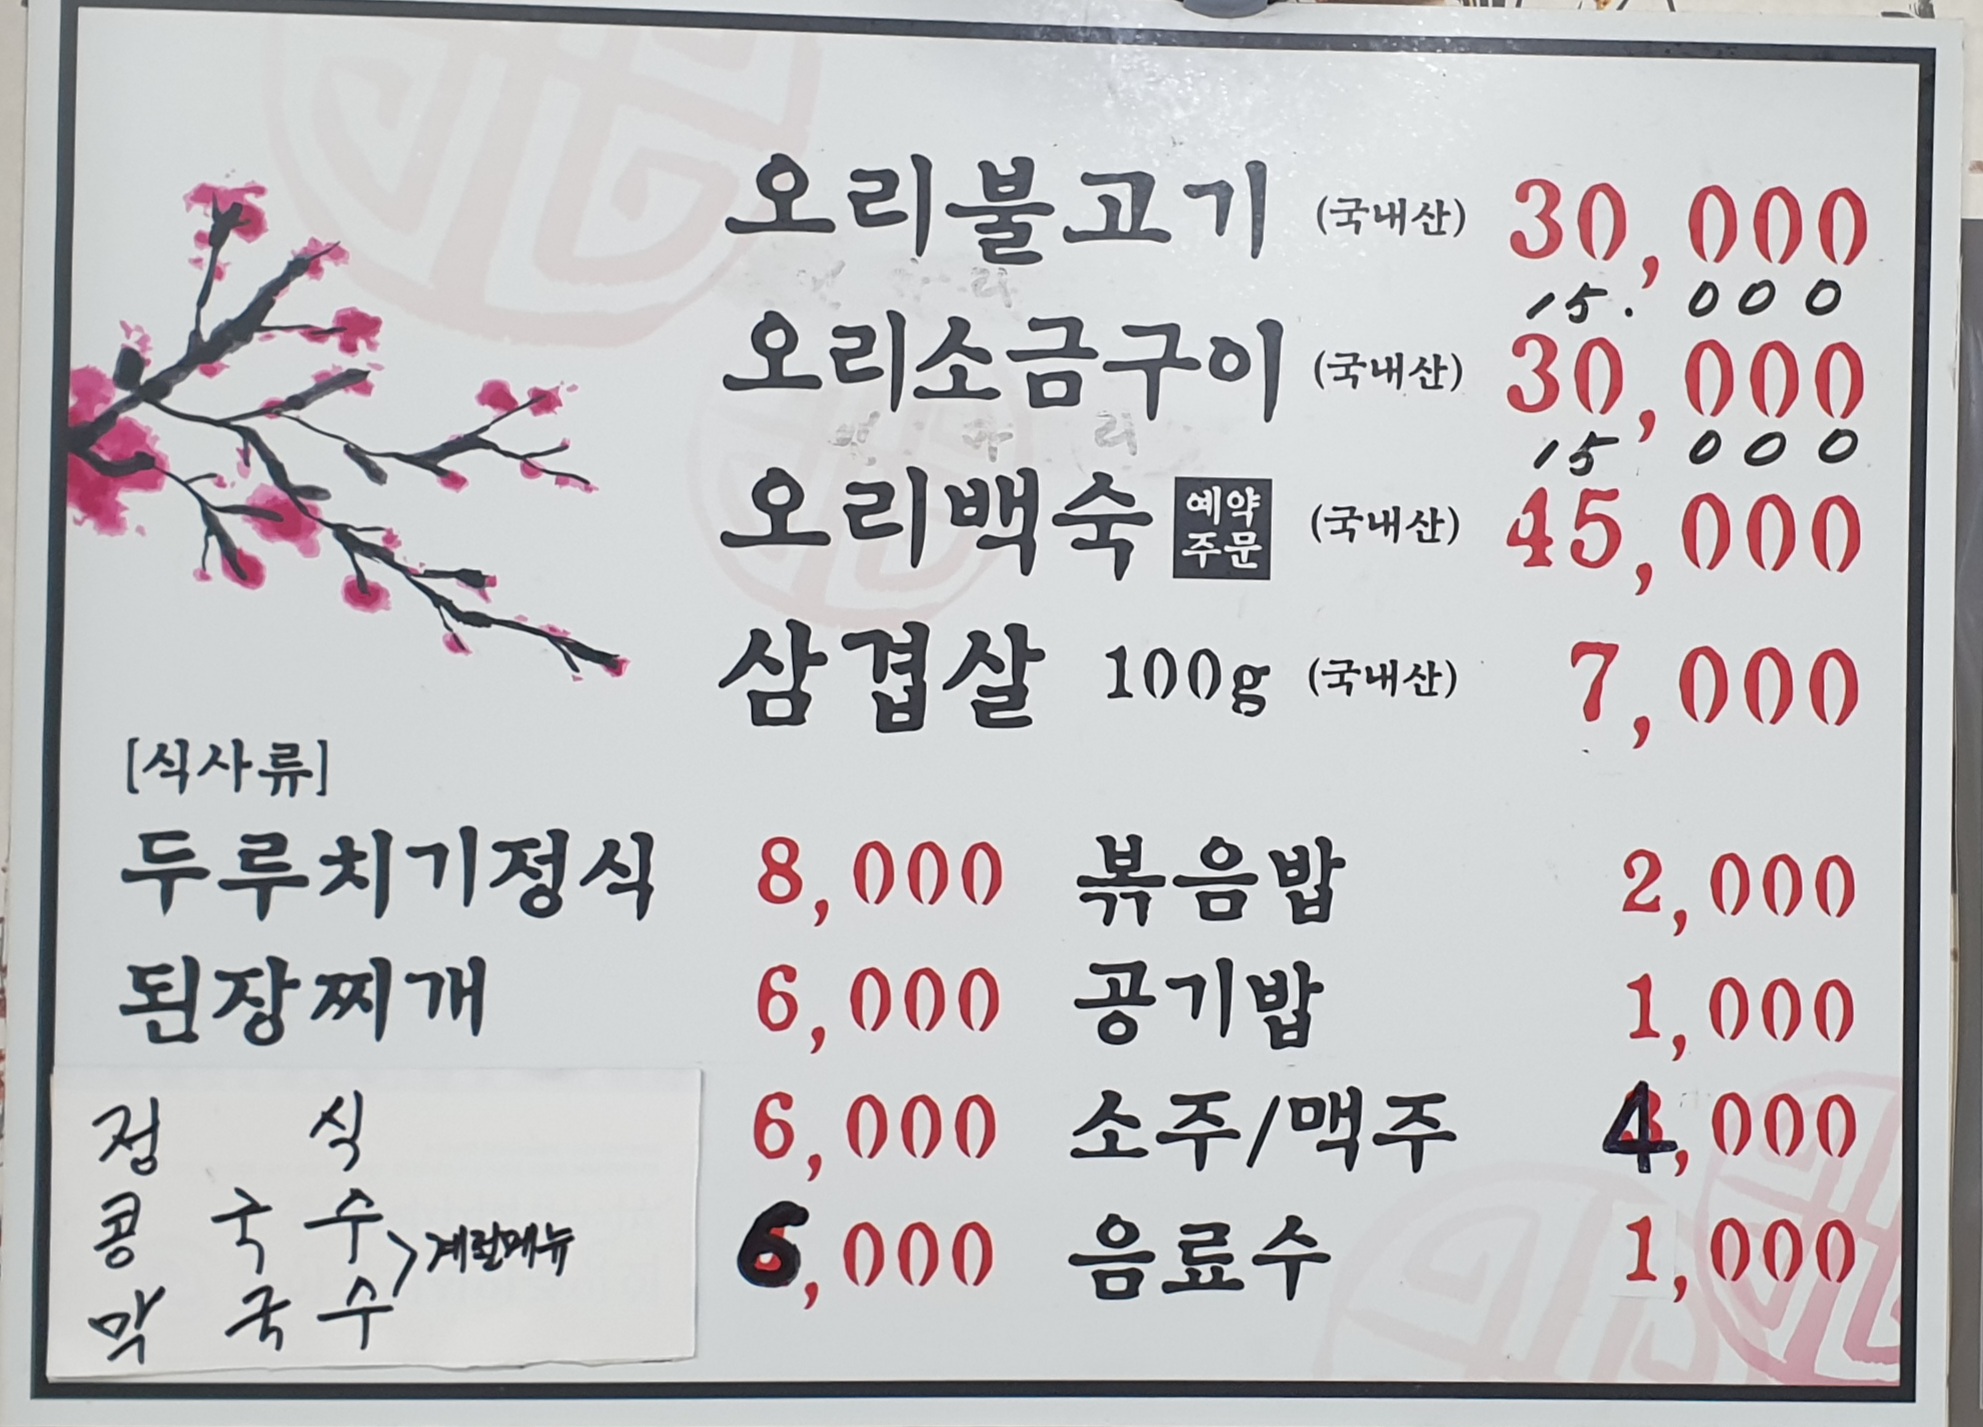 오리불고기 (국내산) 30,000
15.000
오리소금구이 (국내산) 30,000
15 000
오리백숙 예약주문 (국내산) 45,000
삼겹살 100g (국내산) 7,000
[식사류]
두루치기정식 8,000 볶음밥 2,000
된장찌개 6,000 공기밥 1,000
정식 6,000 소주/맥주 4,000
콩국수
막국수 > 계절메뉴 6,000 음료수 1,000